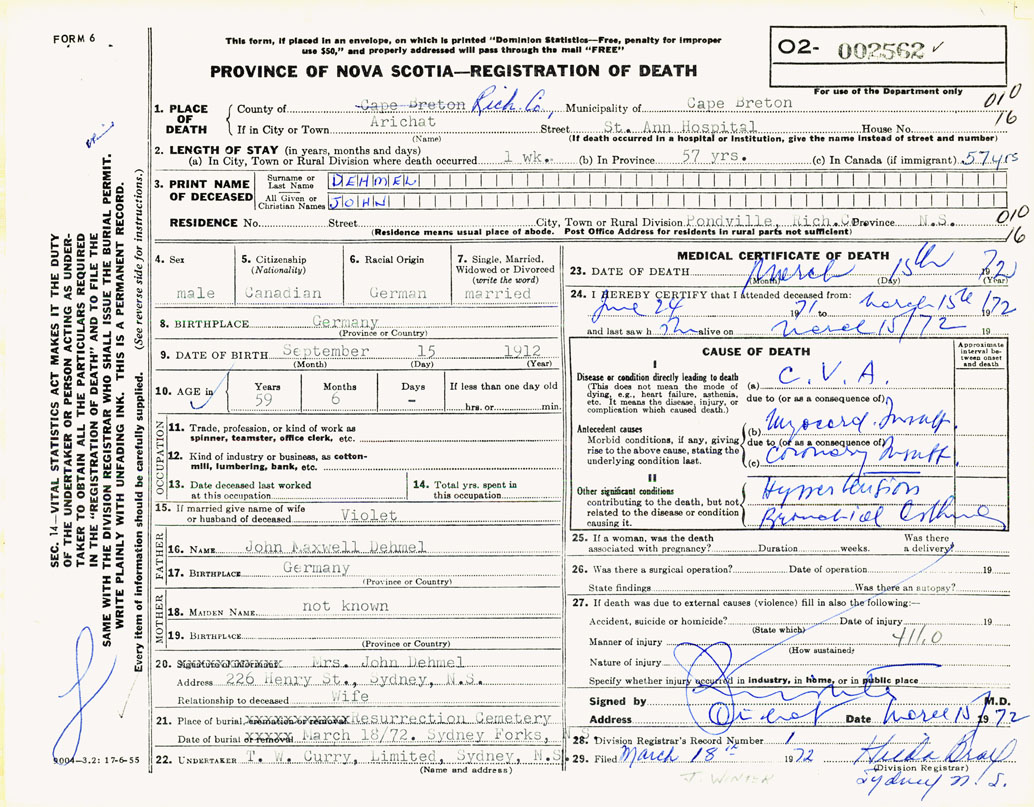 FORM 6
This form, if placed in an envelope, on which is printed "Dominion Statistics—Free, penalty for improper
use $50," and properly addressed will pass through the mail "FREE"
PROVINCE OF NOVA SCOTIA—REGISTRATION OF DEATH
O2- 002562 ✓
For use of the Department only
010
16
1. PLACE OF DEATH
County of Cape Breton Rich. Co. Municipality of Cape Breton
If in City or Town Arichat Street St. Ann Hospital House No.
(Name) (If death occurred in a hospital or institution, give the name instead of street and number)
2. LENGTH OF STAY (in years, months and days)
(a) In City, Town or Rural Division where death occurred 1 wk. (b) In Province 57 yrs. (c) In Canada (if immigrant) 57 yrs
3. PRINT NAME OF DECEASED
Surname or Last Name DEHMEL
All Given or Christian Names JOHN
RESIDENCE No. Street City, Town or Rural Division Pondville, Rich.Co. Province N.S.
(Residence means usual place of abode. Post Office Address for residents in rural parts not sufficient)
010
16
4. Sex
male
5. Citizenship
(Nationality)
Canadian
6. Racial Origin
German
7. Single, Married,
Widowed or Divorced
(write the word)
married
8. BIRTHPLACE Germany
(Province or Country)
9. DATE OF BIRTH September 15 1912
(Month) (Day) (Year)
10. AGE in Years Months Days If less than one day old
59 6 - hrs. or min.
OCCUPATION
11. Trade, profession, or kind of work as
spinner, teamster, office clerk, etc.
12. Kind of industry or business, as cotton-
mill, lumbering, bank, etc.
13. Date deceased last worked
at this occupation
14. Total yrs. spent in
this occupation
15. If married give name of wife
or husband of deceased Violet
FATHER
16. NAME John Maxwell Dehmel
17. BIRTHPLACE Germany
(Province or Country)
MOTHER
18. MAIDEN NAME not known
19. BIRTHPLACE
(Province or Country)
20. Signature of informant Mrs. John Dehmel
Address 226 Henry St., Sydney, N.S.
Relationship to deceased Wife
21. Place of burial, cremation or removal Resurrection Cemetery
Date of burial or removal March 18/72. Sydney Forks, N.S.
22. UNDERTAKER T. W. Curry, Limited, Sydney, N.S.
(Name and address)
MEDICAL CERTIFICATE OF DEATH
23. DATE OF DEATH March 15th 1972
(Month) (Day) (Year)
24. I HEREBY CERTIFY that I attended deceased from:
June 24 1971 to March 15th 1972
and last saw him alive on March 15/72 19
CAUSE OF DEATH
Approximate
interval be-
tween onset
and death
I
Disease or condition directly leading to death
(This does not mean the mode of
dying, e.g., heart failure, asthenia,
etc. It means the disease, injury, or
complication which caused death.)
(a) C. V. A.
due to (or as a consequence of)
Antecedent causes
Morbid conditions, if any, giving
rise to the above cause, stating the
underlying condition last.
(b) Myocard. Insuff.
due to (or as a consequence of)
(c) Coronary Insuff.
II
Other significant conditions
contributing to the death, but not
related to the disease or condition
causing it.
Hypertension
Bronchial Asthma
25. If a woman, was the death
associated with pregnancy? Duration weeks. Was there
a delivery?
26. Was there a surgical operation? Date of operation 19
State findings Was there an autopsy?
27. If death was due to external causes (violence) fill in also the following:—
Accident, suicide or homicide? Date of injury 19
(State which)
Manner of injury
(How sustained)
Nature of injury
Specify whether injury occurred in industry, in home, or in public place
Signed by M.D.
Address Arichat Date March 15 1972
28. Division Registrar's Record Number 1
29. Filed March 18th 1972
(Division Registrar)
Sydney N. S.
SEC. 14—VITAL STATISTICS ACT MAKES IT THE DUTY
OF THE UNDERTAKER OR PERSON ACTING AS UNDER-
TAKER TO OBTAIN ALL THE PARTICULARS REQUIRED
IN THE "REGISTRATION OF DEATH" AND TO FILE THE
SAME WITH THE DIVISION REGISTRAR WHO SHALL ISSUE THE BURIAL PERMIT.
WRITE PLAINLY WITH UNFADING INK. THIS IS A PERMANENT RECORD.
Every item of information should be carefully supplied. (See reverse side for instructions.)
9004-3.2: 17-6-55